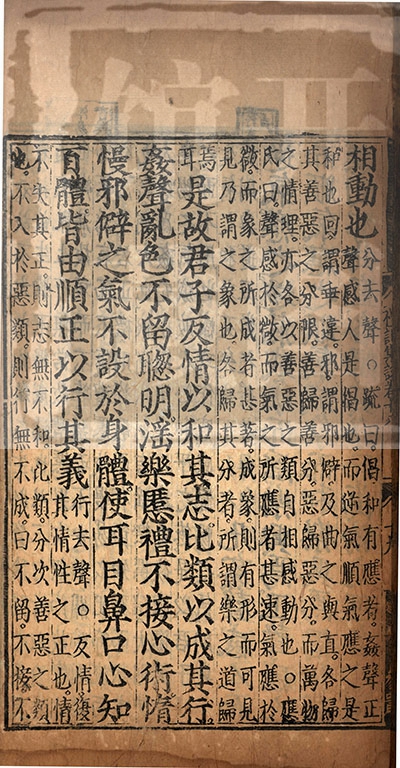 相動也
分去聲○疏曰。倡和有應者。姦聲正
聲感人是倡也。而逆氣順氣應之是
和也。回謂乖違。邪謂邪僻。及曲之與直。各歸
其善惡之分限。善歸善分。惡歸惡分。而萬物
之情理。亦各以善惡之類自相感動也○應
氏曰。聲感於微。而氣之所應者甚速。氣應於
微。而象之所成者甚著。成象。則有形而可見。
見乃謂之象也。各歸其分者。所謂樂之道歸
焉
耳
是故君子反情以和其志比類以成其行
姦聲亂色不留聰明滛樂慝禮不接心術惰
慢邪僻之氣不設於身體使耳目鼻口心知
百體皆由順正以行其義
行去聲○反情。復
其情性之正也。情
不失其正。則志無不和。比類。分次善惡之類
也。不入於惡類。則行無不成。曰不留。不接。不